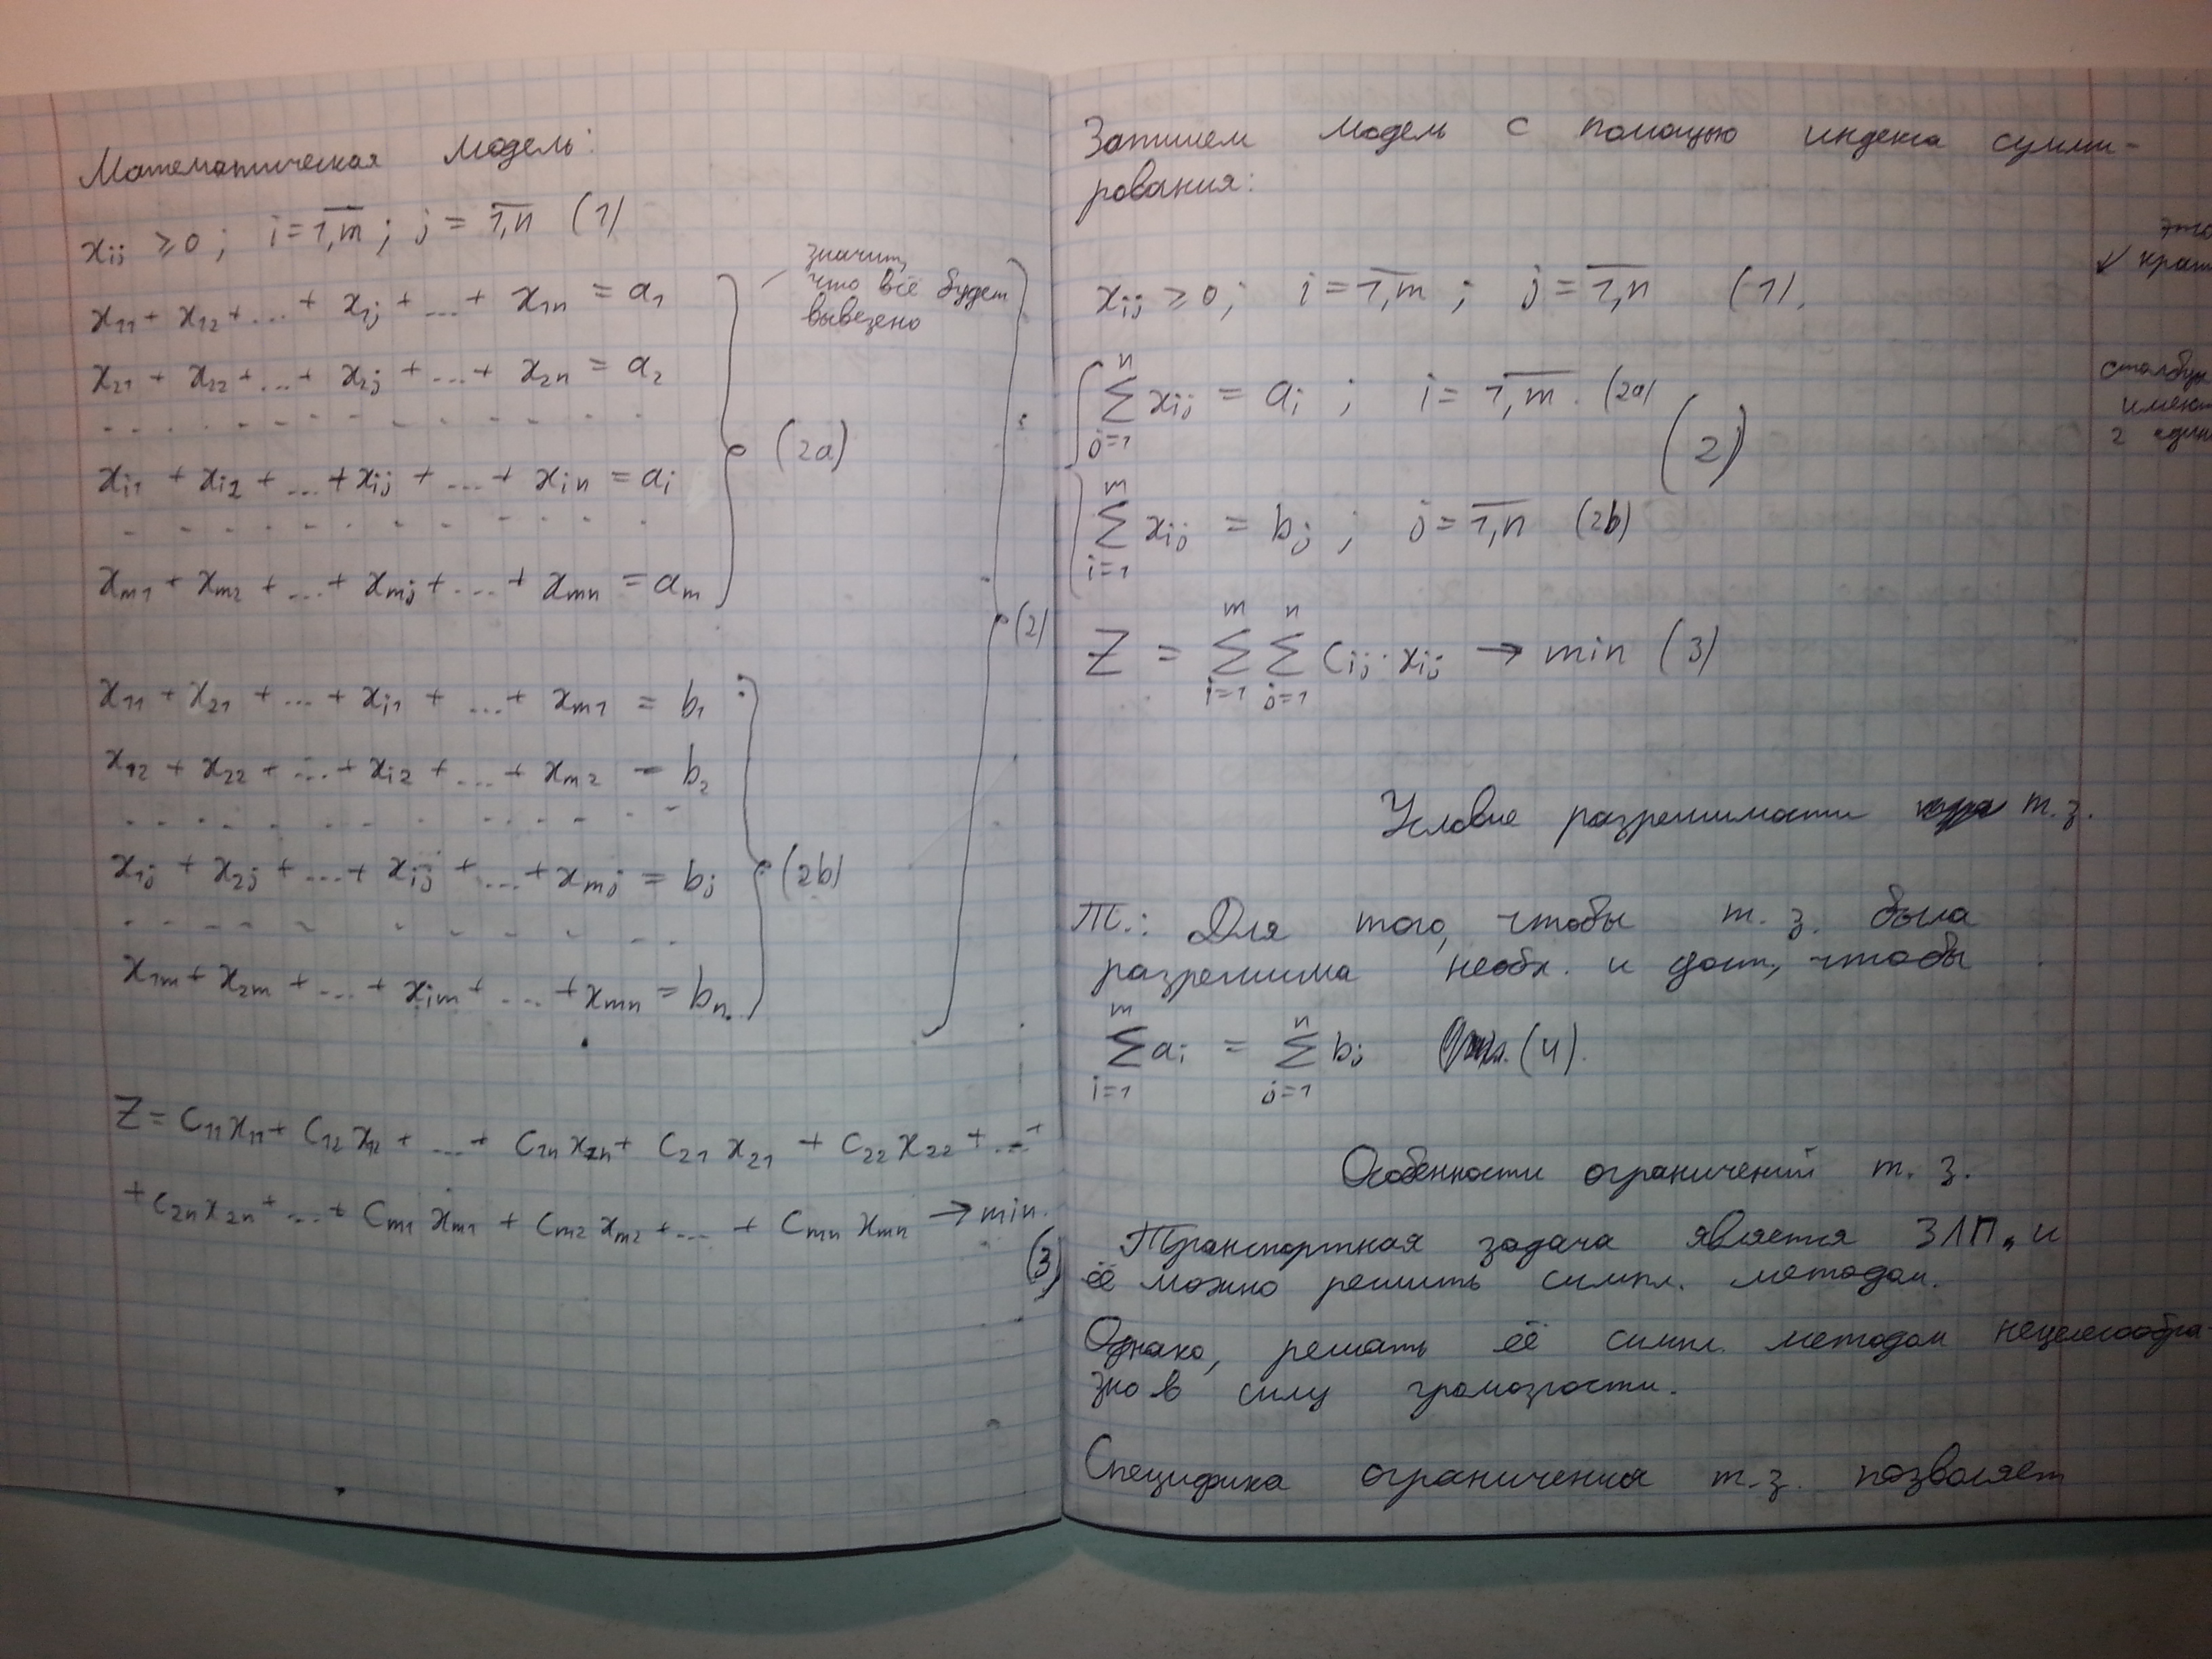 Математическая модель:
xij ≥ 0; i = 1,m; j = 1,n (1)
x11 + x12 + ... + x1j + ... + x1n = a1
x21 + x22 + ... + x2j + ... + x2n = a2
. . . . . . . . . . . .
xi1 + xi2 + ... + xij + ... + xin = ai
. . . . . . . . . . . .
xm1 + xm2 + ... + xmj + ... + xmn = am
(2a)
значит,
что всё будет
вывезено
x11 + x21 + ... + xi1 + ... + xm1 = b1
x12 + x22 + ... + xi2 + ... + xm2 = b2
. . . . . . . . . . . .
x1j + x2j + ... + xij + ... + xmj = bj
. . . . . . . . . . . .
x1m + x2m + ... + xim + ... + xmn = bn.
(2b)
(2)
Z = c11x11 + c12x12 + ... + c1nx1n + c21x21 + c22x22 + ... +
+ c2nx2n + ... + cm1xm1 + cm2xm2 + ... + cmnxmn → min.
(3)
Запишем модель с помощью индекса сумми-
рования:
xij ≥ 0; i = 1,m; j = 1,n (1),
n∑j=1 xij = ai; i = 1,m. (2a)
(2)
m∑i=1 xij = bj; j = 1,n (2b)
Z = m∑i=1 n∑j=1 cij · xij → min (3)
Условие разрешимости т.з.
Т.: Для того, чтобы т.з. была
разрешима необх. и дост., чтобы
m∑i=1 ai = n∑j=1 bj (4).
Особенности ограничений т.з.
Транспортная задача является ЗЛП, и
её можно решить симпл. методом.
Однако, решать её симпл. методом нецелесообра-
зно в силу громозкости.
Специфика ограничения т.з. позволяет